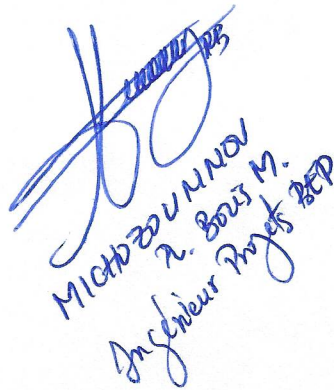 MICHOZOUNNOU
R. Boris M.
Ingénieur Projets BEP